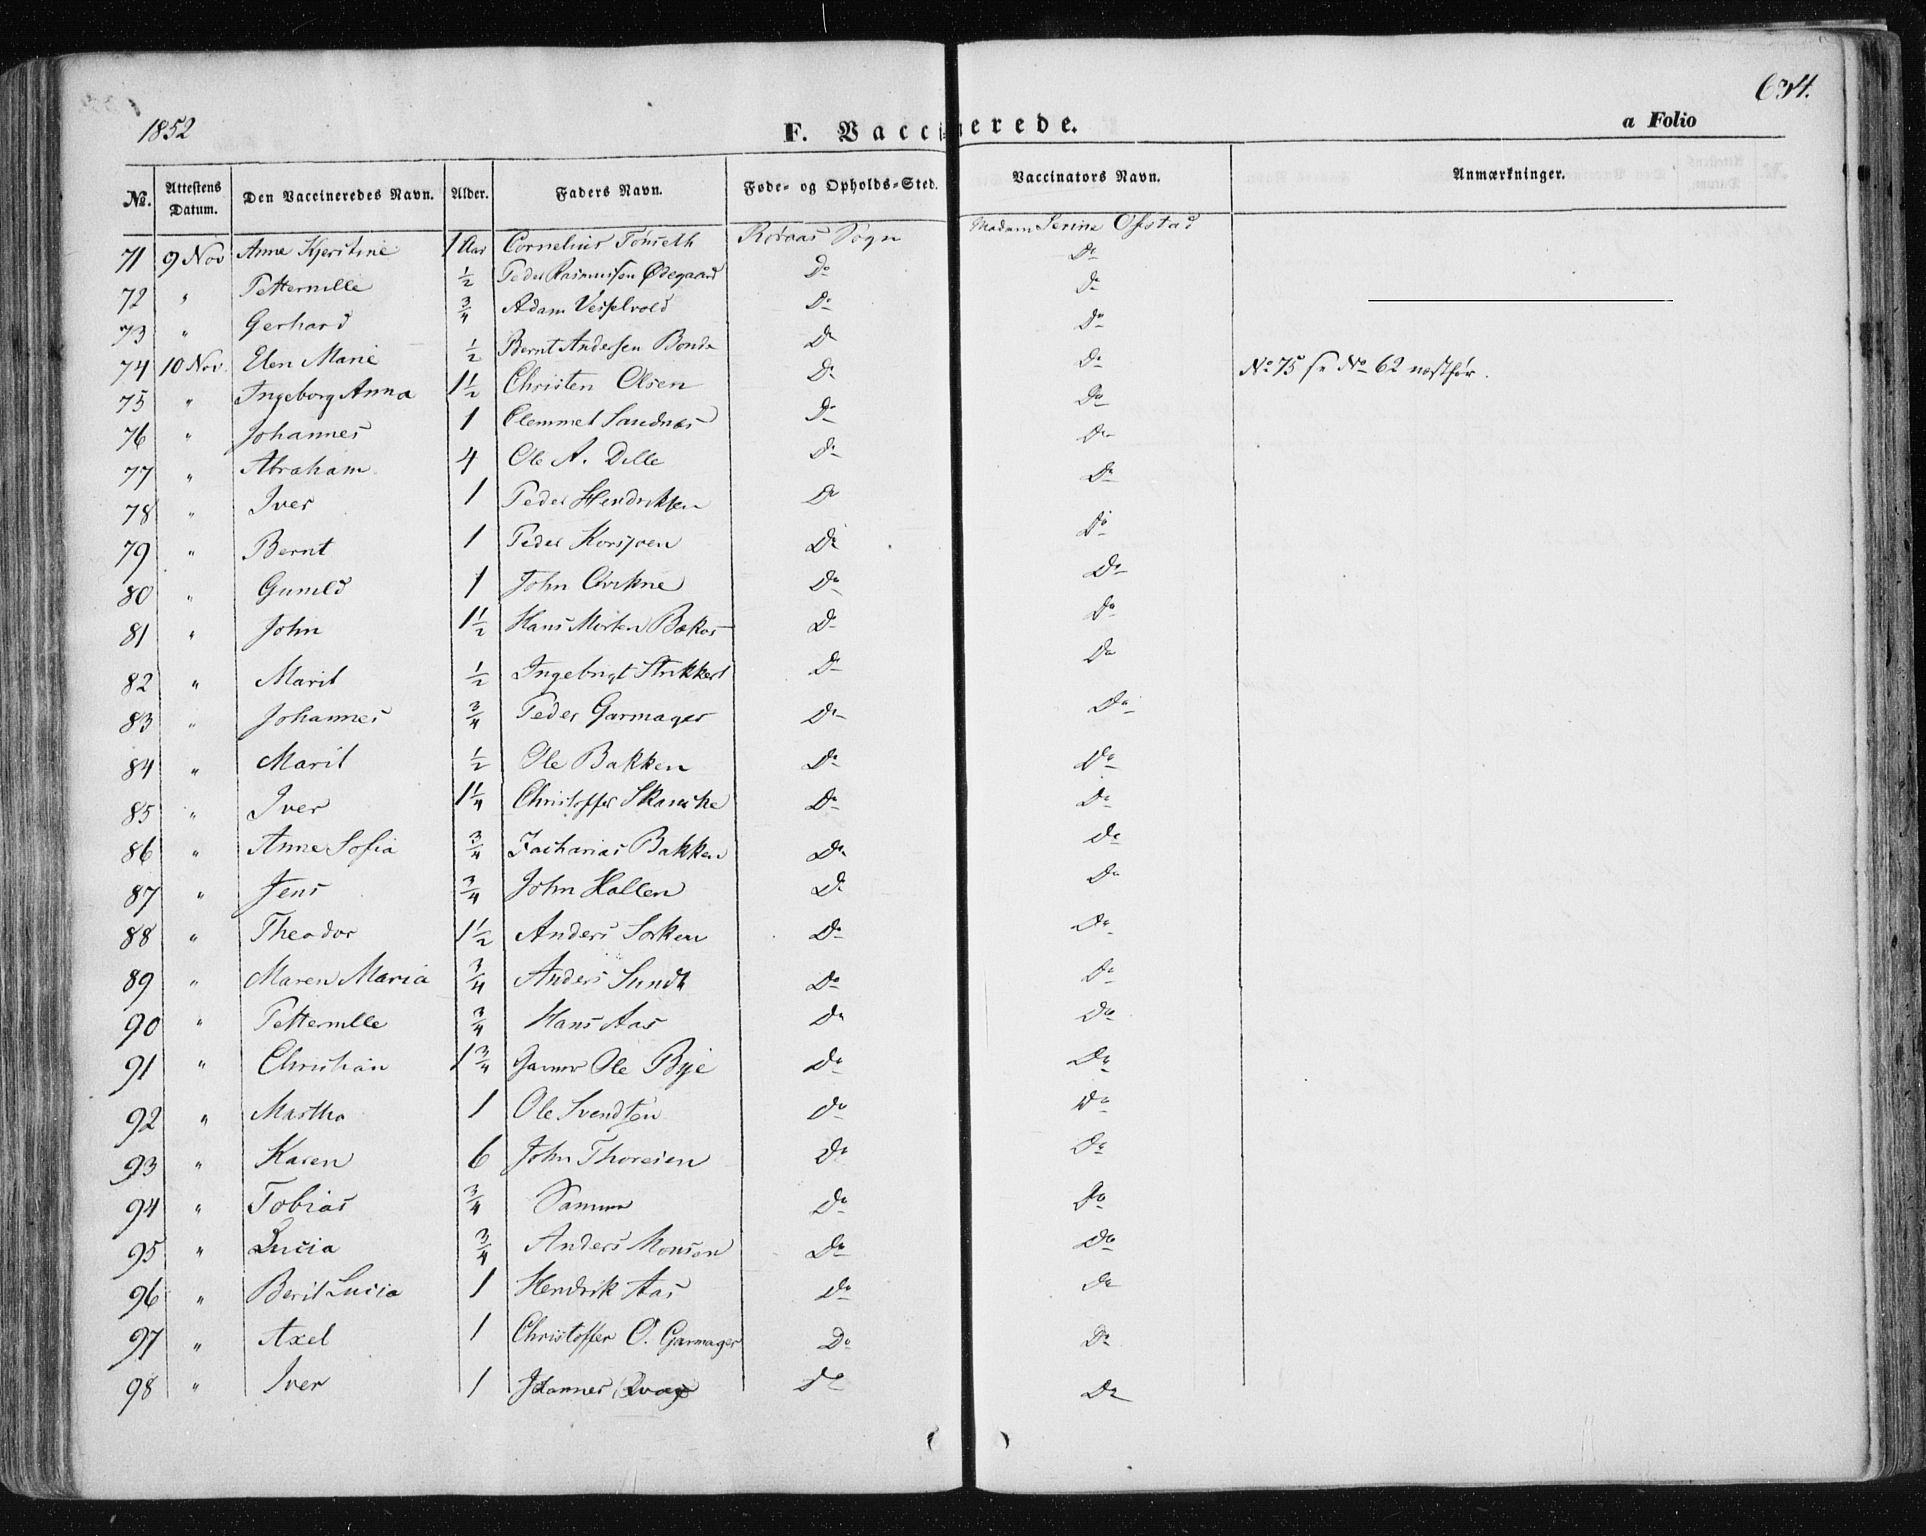 1852 F. Vaccinerede. a Folio 634.
No. Attestens Datum. Den Vaccineredes Navn. Alder. Faders Navn. Føde- og Opholds-Sted. Vaccinators Navn. Anmærkninger.
71 9 Nov Anne Kjerstine 1 Aar Cornelius Tønseth Røraas Sogn Madam Serine Ofstad
72 " Petternille 1/2 Peder Rasmussen Ødegaard Do Do
73 " Gerhard 3/4 Adam Vesselvold Do Do
74 10 Nov. Elen Marie 1/2 Bernt Andersen Bonde Do Do
75 " Ingeborg Anna 1 1/2 Christen Olsen Do Do No 75 se No 62 næstfør.
76 " Johannes 1 Clemmet Sandnæs Do Do
77 " Abraham 4 Ole A. Dille Do Do
78 " Iver 1 Peder Hendriksen Do Do
79 " Bernt 1 Peder Korsjoen Do Do
80 " Gunild 1 John Qvikne Do Do
81 " John 1 1/2 Hans Morten Bækos Do Do
82 " Marit 1/2 Ingebrigt Strikkert Do Do
83 " Johannes 3/4 Peder Garmager Do Do
84 " Marit 1/2 Ole Bakken Do Do
85 " Iver 1 1/4 Christoffer Skancke Do Do
86 " Anne Sofia 3/4 Zacharias Bakken Do Do
87 " Jens 3/4 John Hallen Do Do
88 " Theodor 1 1/2 Anders Sorken Do Do
89 " Maren Maria 3/4 Anders Sundt Do Do
90 " Petternille 3/4 Hans Aas Do Do
91 " Christian 1 3/4 Ole Bye Do Do
92 " Martha 1 Ole Svendsen Do Do
93 " Karen 6 John Thoresen Do Do
94 " Tobias 3/4 Samme Do Do
95 " Lucia 3/4 Anders Monsen Do Do
96 " Berit Lucia 1 Hendrik Aas Do Do
97 " Axel 1 Christoffer O. Garmager Do Do
98 " Iver 1 Johannes Do Do